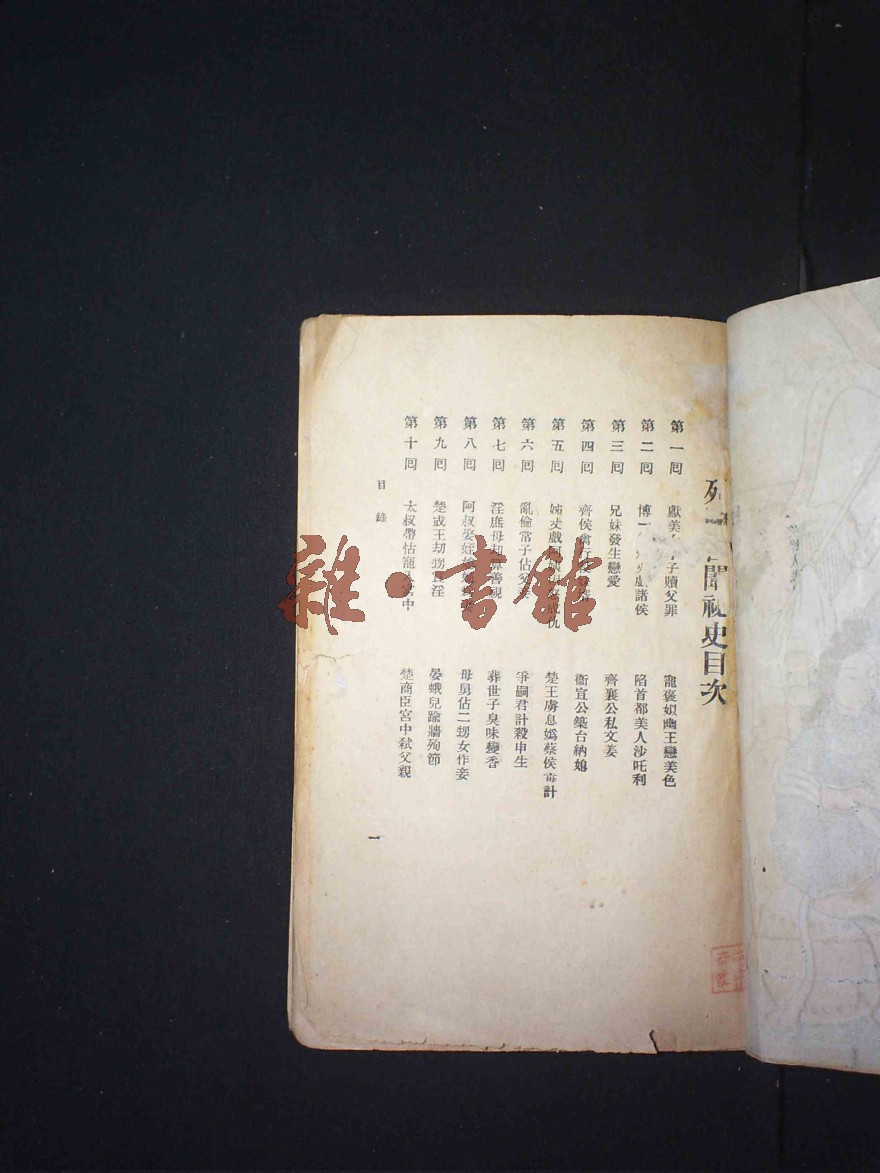 聞秘史目次
第一回 獻美 子贖父罪 寵褒姒幽王戀美色
第二回 博 諸侯 陷首都美人沙吒利
第三回 兄妹發生戀愛 齊襄公私文姜
第四回 齊侯禽行 衞宣公築台納媳
第五回 姊丈戲阿姨 成仇 楚王虜息媯蔡侯毒計
第六回 亂倫常子佔父妾 爭嗣君計殺申生
第七回 淫庶母 葬世子臭味變香
第八回 阿叔娶姪 母舅佔二甥女作妾
第九回 楚成王劫甥 淫 晏蛾兒踰牆殉節
第十回 太叔帶怙寵 宮中 楚商臣宮中弒父親
目錄
一
雜·書館